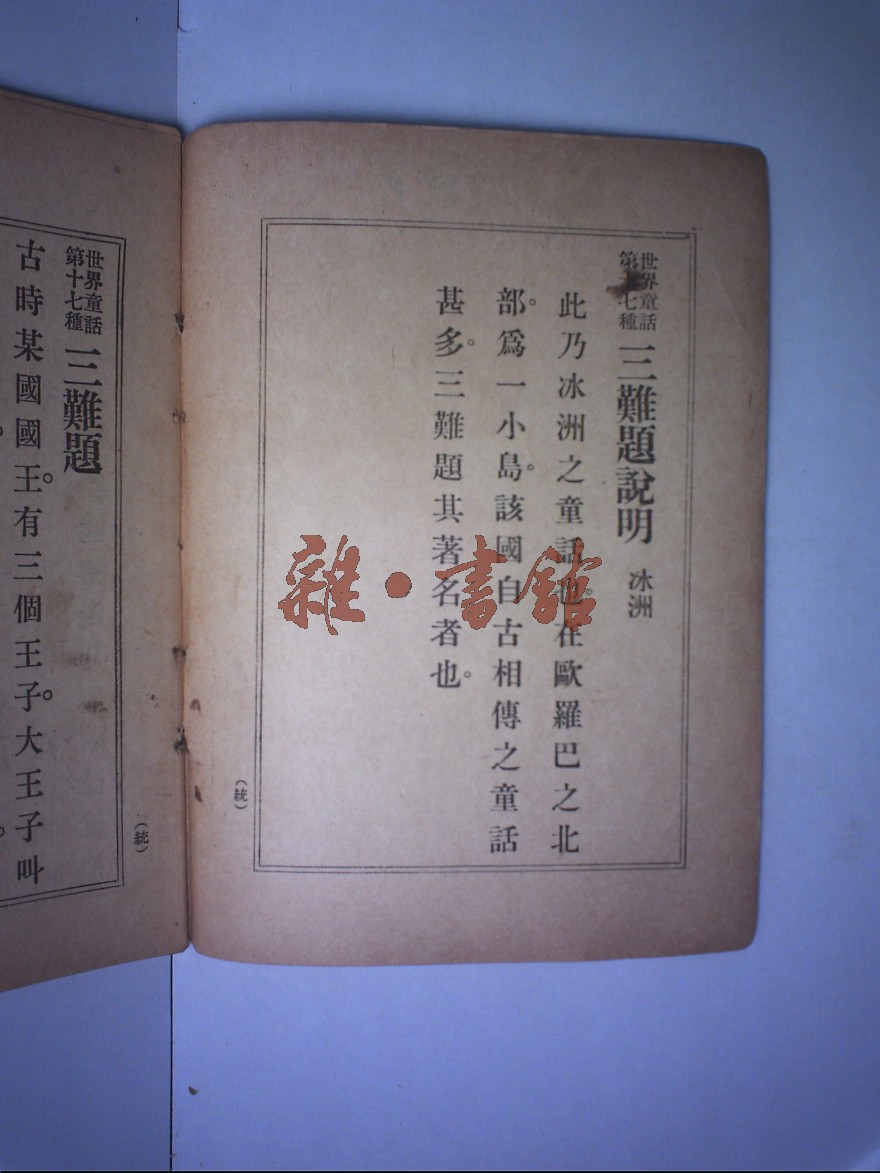 世界童話
第十七種
三難題說明 冰洲
此乃冰洲之童話也。在歐羅巴之北
部。爲一小島。該國自古相傳之童話
甚多。三難題其著名者也。
(統)
世界童話
第十七種
三難題
古時某國國王。有三個王子。大王子叫
(統)
雜·書館